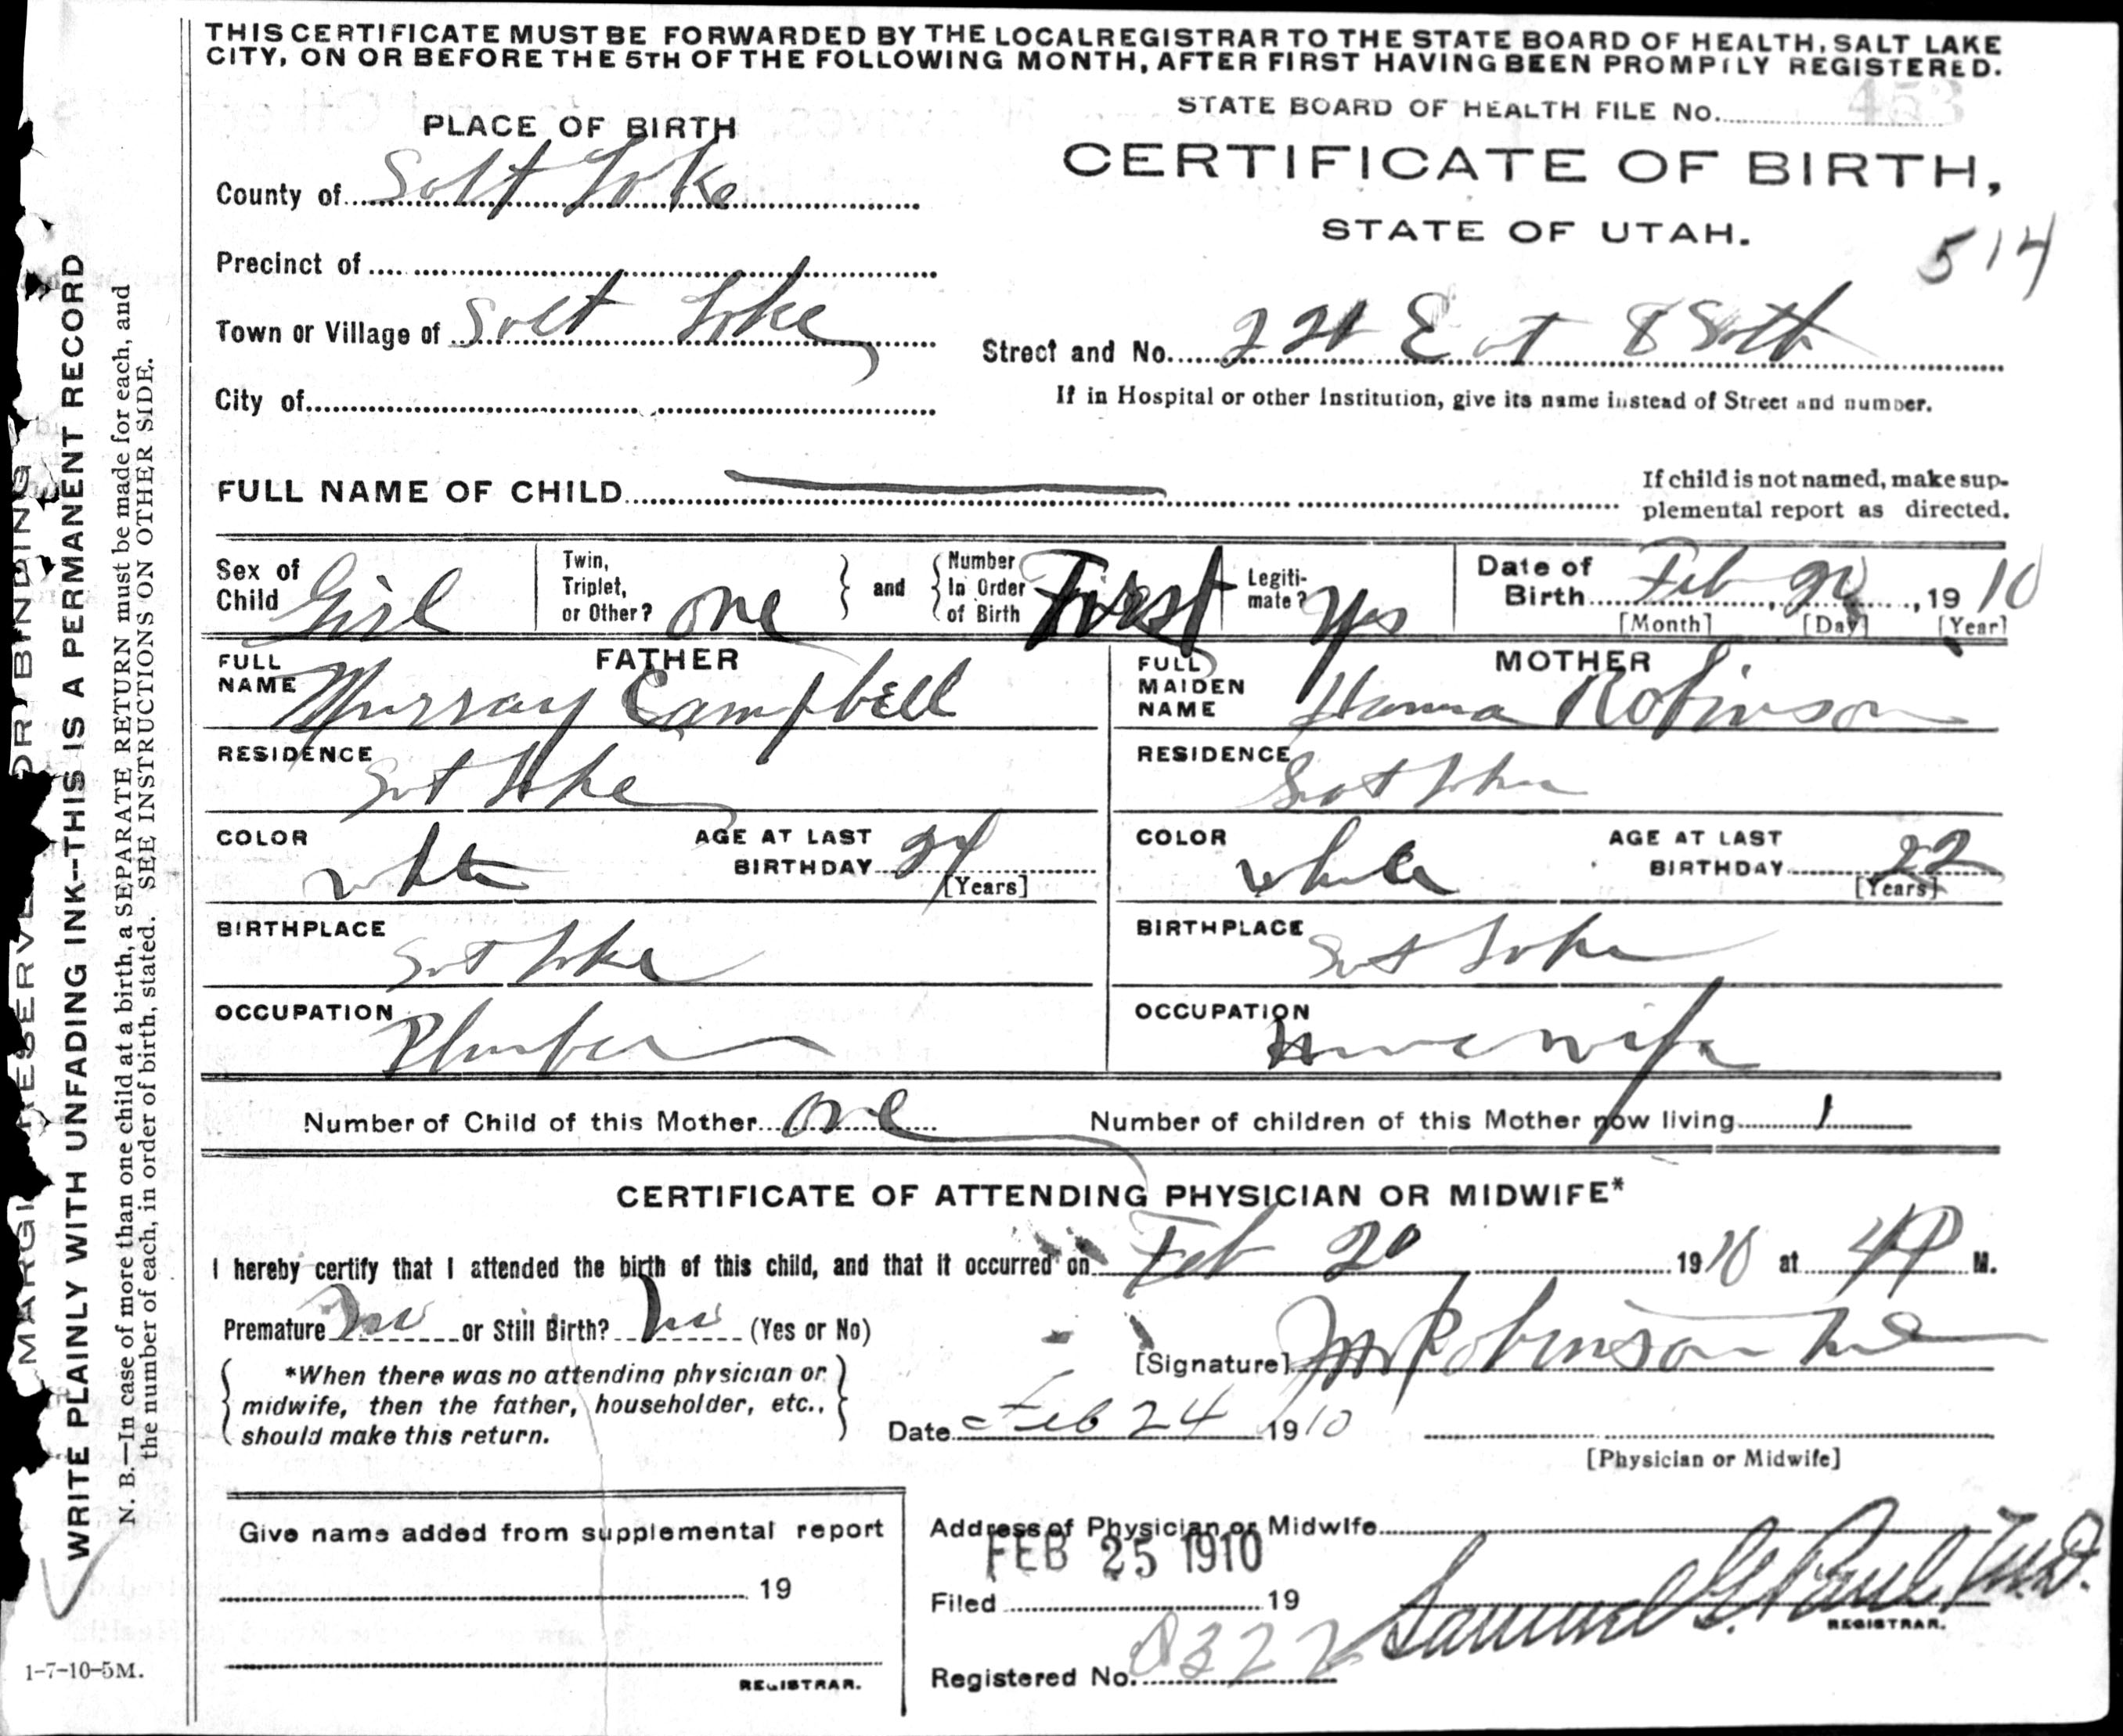 THIS CERTIFICATE MUST BE FORWARDED BY THE LOCAL REGISTRAR TO THE STATE BOARD OF HEALTH, SALT LAKE
CITY, ON OR BEFORE THE 5TH OF THE FOLLOWING MONTH, AFTER FIRST HAVING BEEN PROMPTLY REGISTERED.
STATE BOARD OF HEALTH FILE No. 453
PLACE OF BIRTH
CERTIFICATE OF BIRTH,
County of Salt Lake
STATE OF UTAH.
514
Precinct of
Town or Village of Salt Lake
Street and No. 221 East 8 South
City of
If in Hospital or other Institution, give its name instead of Street and number.
FULL NAME OF CHILD
If child is not named, make sup-
plemental report as directed.
Sex of Child Girl
Twin, Triplet, or Other? one
and
Number In Order of Birth First
Legiti-mate? Yes
Date of Birth Feb 20, 1910
[Month] [Day] [Year]
FATHER
FULL NAME Murray Campbell
MOTHER
FULL MAIDEN NAME Hanna Robinson
RESIDENCE Salt Lake
RESIDENCE Salt Lake
COLOR white
AGE AT LAST BIRTHDAY 24 [Years]
COLOR white
AGE AT LAST BIRTHDAY 22 [Years]
BIRTHPLACE Salt Lake
BIRTHPLACE Salt Lake
OCCUPATION Plumber
OCCUPATION Housewife
Number of Child of this Mother one
Number of children of this Mother now living 1
CERTIFICATE OF ATTENDING PHYSICIAN OR MIDWIFE*
I hereby certify that I attended the birth of this child, and that it occurred on Feb 20 1910 at 4 P M.
Premature no or Still Birth? no (Yes or No)
*When there was no attending physician or
midwife, then the father, householder, etc.,
should make this return.
[Signature] Robinson
Date Feb 24 1910
[Physician or Midwife]
Give name added from supplemental report
19
REGISTRAR.
Address of Physician or Midwife
FEB 25 1910
Filed 19
Samuel G. Paul, M.D.
REGISTRAR.
Registered No. 8322
MARGIN RESERVED FOR BINDING
WRITE PLAINLY WITH UNFADING INK--THIS IS A PERMANENT RECORD
N. B.—In case of more than one child at a birth, a SEPARATE RETURN must be made for each, and
the number of each, in order of birth, stated. SEE INSTRUCTIONS ON OTHER SIDE.
1-7-10-5M.